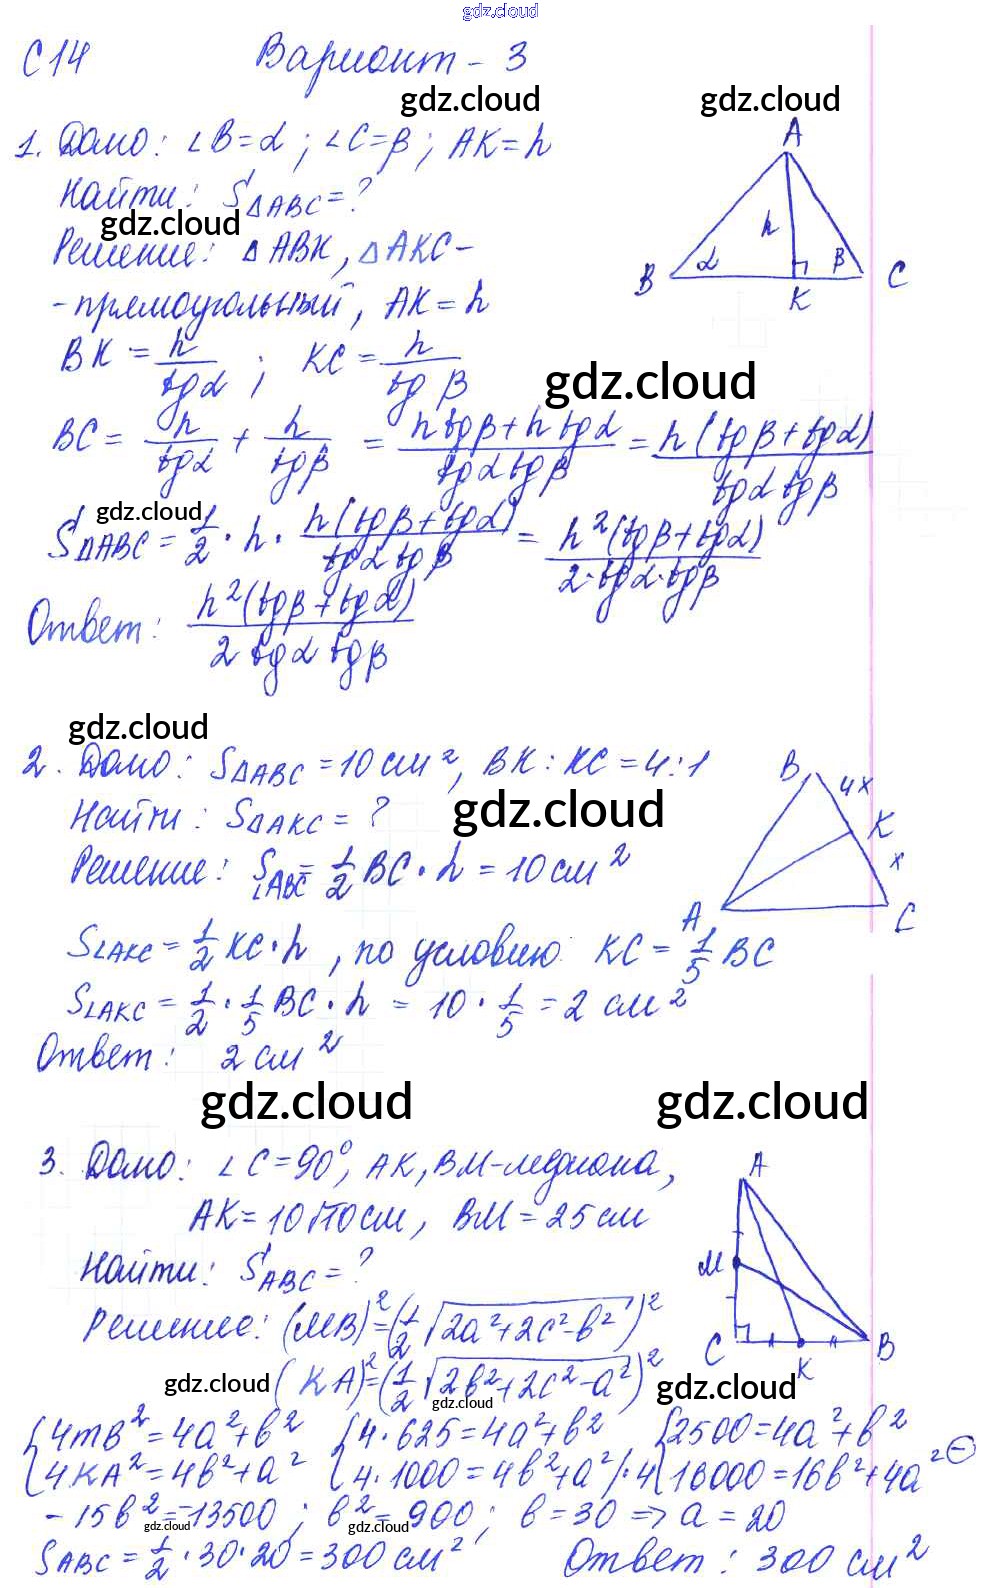 gdz.cloud
С14 Вариант - 3
gdz.cloud gdz.cloud
1. Дано: ∠B=α ; ∠C=β ; AK=h
Найти: S△ABC=?
gdz.cloud
Решение: △ABK, △AKC-
-прямоугольный, AK=h
A
h
α β
B K C
BK = h/tgα ; KC = h/tg β
gdz.cloud
BC = h/tgα + h/tgβ = (h tgβ + h tgα)/(tgα tgβ) = h(tgβ+tgα)/(tgα tgβ)
gdz.cloud
S△ABC = 1/2 · h · h(tgβ+tgα)/(tgα tgβ) = h²(tgβ+tgα)/(2·tgα·tgβ)
Ответ: h²(tgβ+tgα)/(2 tgα tgβ)
gdz.cloud
2. Дано: S△ABC=10см², BK:KC=4:1
gdz.cloud
Найти: S△AKC=?
Решение: S∠ABC = 1/2 BC·h = 10см²
B 4x
K
x
A C
S∠AKC = 1/2 KC·h, по условию KC = 1/5 BC
S∠AKC = 1/2 · 1/5 BC · h = 10 · 1/5 = 2 см²
Ответ: 2 см²
gdz.cloud gdz.cloud
3. Дано: ∠C=90°, AK, BM-медиана,
AK=10√10см, BM=25см
Найти: SABC=?
A
M
C K B
Решение: (MB)²=(1/2 √2a²+2c²-b²)²
gdz.cloud (KA)²=(1/2 √2b²+2c²-a²)² gdz.cloud
gdz.cloud
{4mB²=4a²+b² {4·625=4a²+b² {2500=4a²+b²
{4KA²=4b²+a² {4·1000=4b²+a² /·4 {16000=16b²+4a² ⊖
-15b²=-13500 ; b²=900; b=30 => a=20
gdz.cloud gdz.cloud
SABC = 1/2 · 30·20=300 см² Ответ: 300 см²